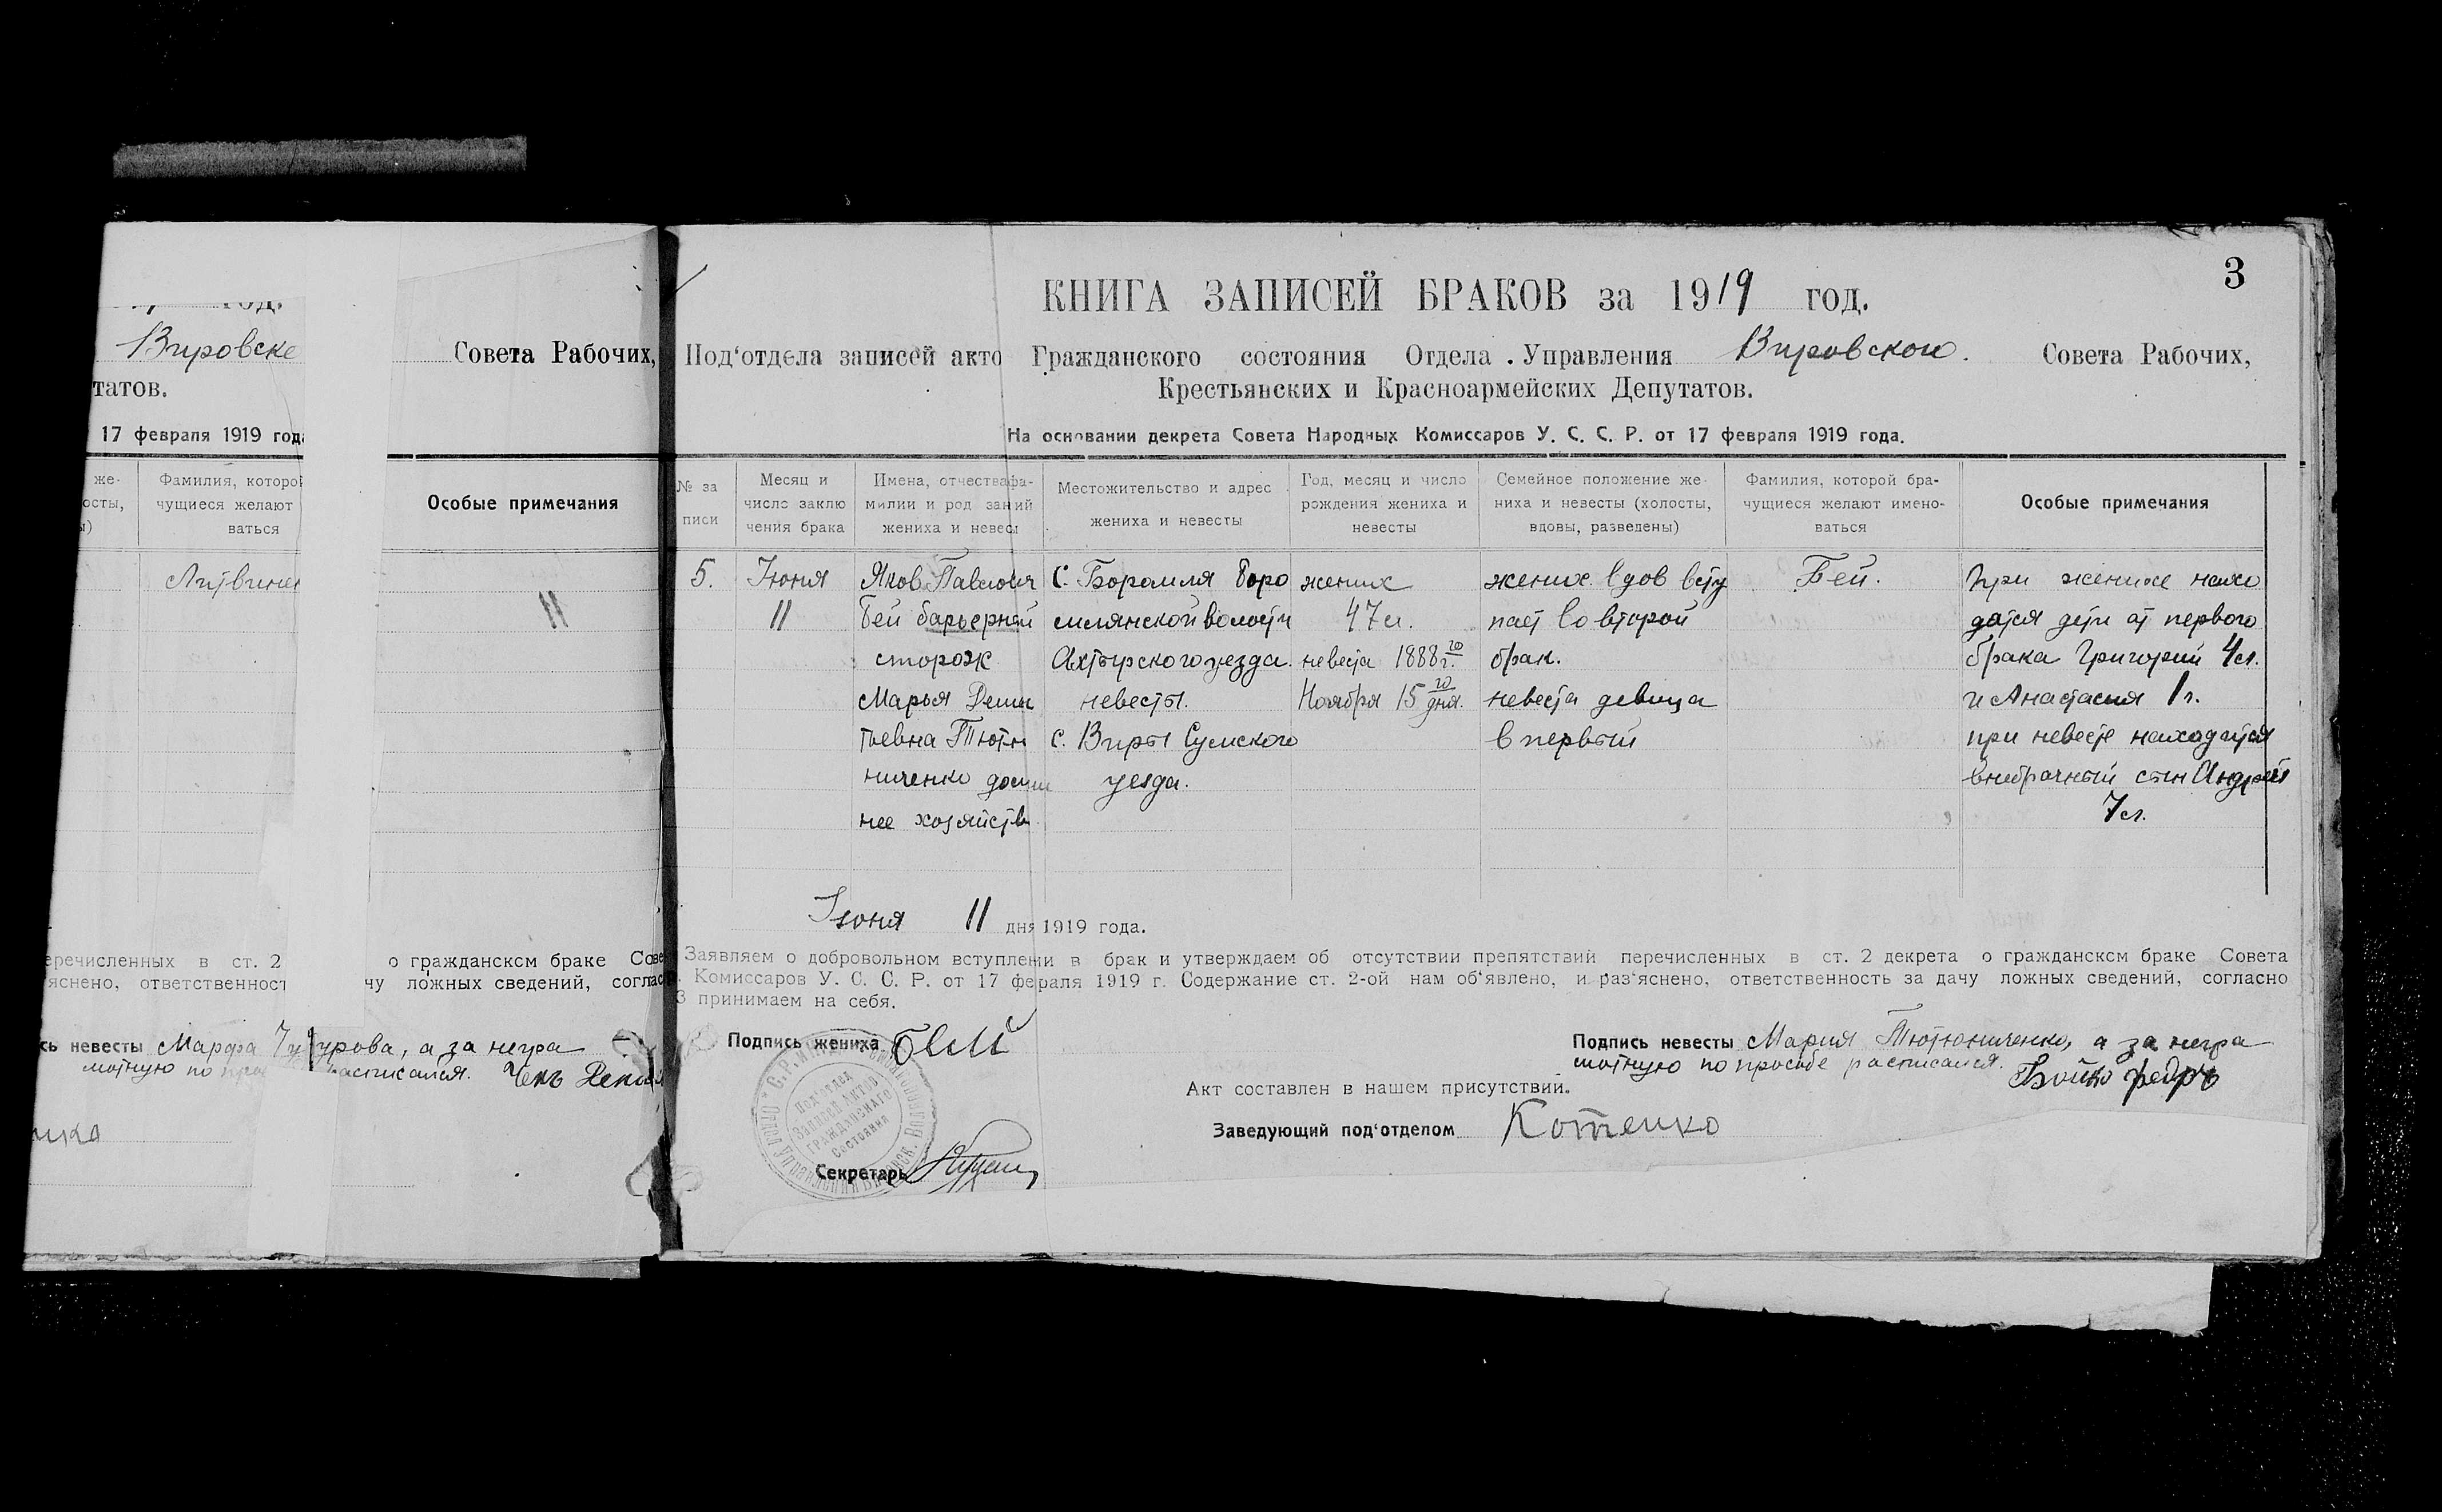 год.
Вировске
Совета Рабочих,
татов.
17 февраля 1919 года
же-
ости,
Фамилия, которой
чущиеся желают
ваться
Особые примечания
Литвинен
11
еречисленных в ст. 2 о гражданском браке Сове
яснено, ответственност чу ложных сведений, соглас
сь невесты Марфа урова, а за негра
мотную по расписался.
3
КНИГА ЗАПИСЕЙ БРАКОВ за 1919 год.
Под'отдела записей акто Гражданского состояния Отдела Управления Вировского. Совета Рабочих,
Крестьянских и Красноармейских Депутатов.
На основании декрета Совета Народных Комиссаров У. С. С. Р. от 17 февраля 1919 года.
№ за
писи
Месяц и
число заклю
чения брака
Имена, отчества фа-
милии и род заний
жениха и невесы
Местожительство и адрес
жениха и невесты
Год, месяц и число
рождения жениха и
невесты
Семейное положение же-
ниха и невесты (холосты,
вдовы, разведены)
Фамилия, которой бра-
чущиеся желают имено-
ваться
Особые примечания
5.
Июня
11
Яков Павлович
Бей барьерный
сторож
Марья Демен
тьевна Тютю
ниченко домаш
нее хозяйств
С. Боромля Боро
млянской волости
Ахтырского уезда.
невесты.
с. Виры Сумского
уезда.
жених
47 л.
невеста 1888 го г.
Ноября 15 го дня.
жених вдов всту
пает во второй
брак.
невеста девица
в первый
Бей.
при женихе нахо
дятся дети от первого
брака Григорий 4 л.
и Анастасия 1 г.
при невесте находится
внебрачный сын Андрей
7 л.
Июня 11 дня 1919 года.
Заявляем о добровольном вступлени в брак и утверждаем об отсутствии препятствий перечисленных в ст. 2 декрета о гражданском браке Совета
Комиссаров У. С. С. Р. от 17 февраля 1919 г. Содержание ст. 2-ой нам об'явлено, и раз'яснено, ответственность за дачу ложных сведений, согласно
3 принимаем на себя.
Подпись жениха Бей
Подпись невесты Мария Тютюниченко, а за негра
мотную по просьбе расписался.
Бойко Федръ
Акт составлен в нашем присутствии.
Заведующий под'отделом Котенко
Секретарь
Под'отдел
Записей Актов
Гражданскаго
Состояния